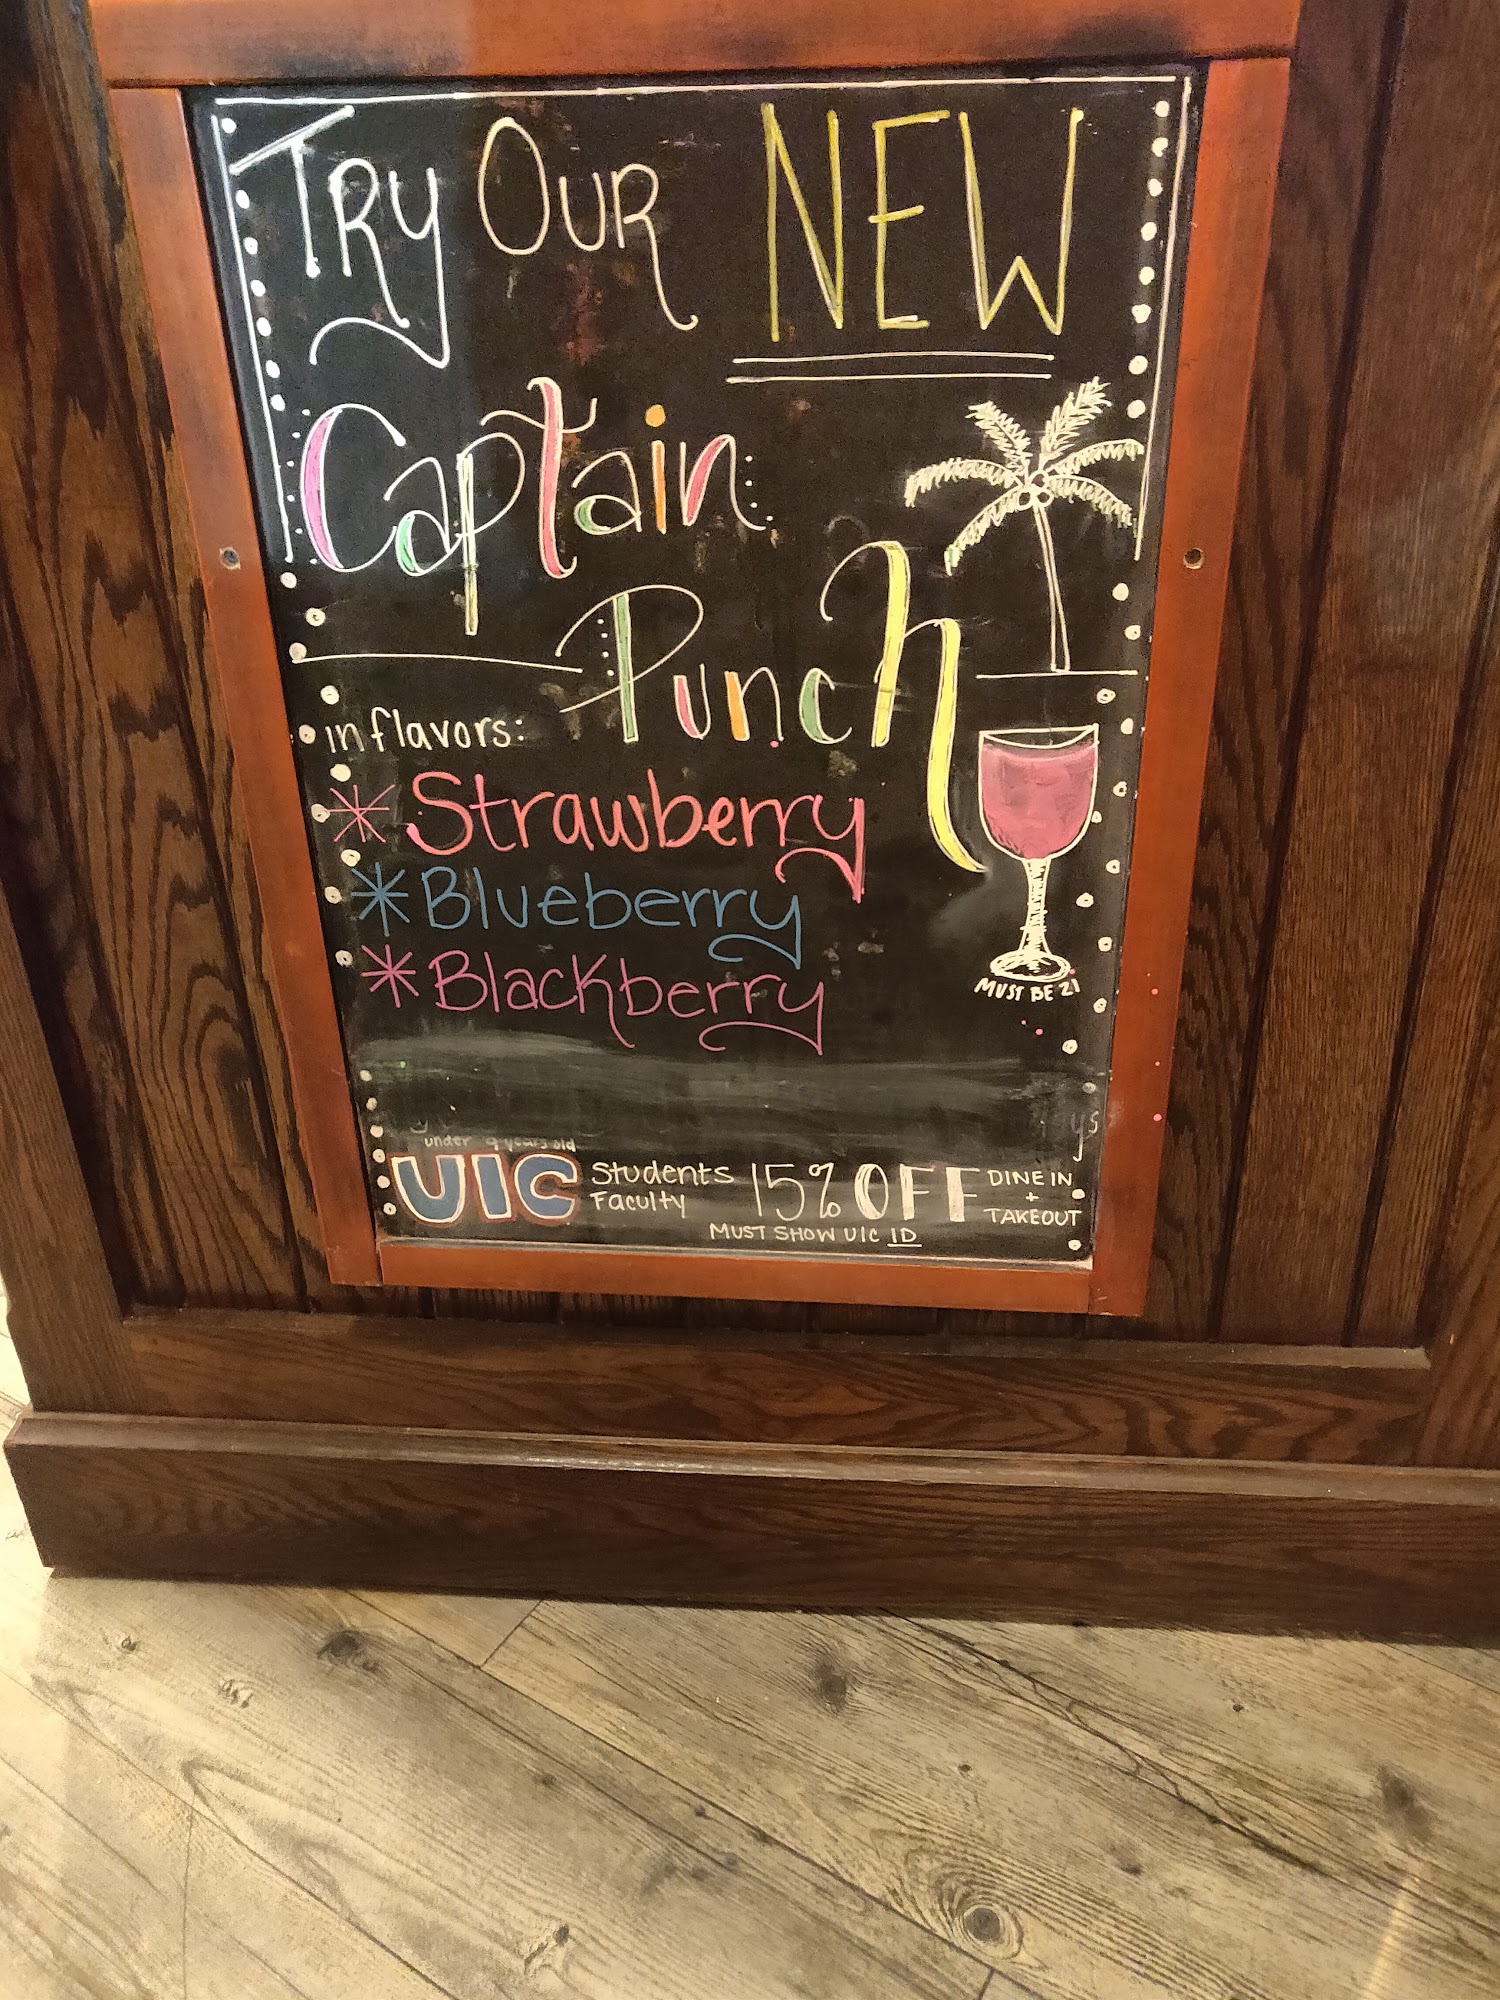 Try Our NEW
Captain
Punch
in flavors:
* Strawberry
* Blueberry
* Blackberry
MUST BE 21
ys
under 9 years old
UIC Students Faculty 15% OFF DINE IN + TAKEOUT
MUST SHOW UIC ID